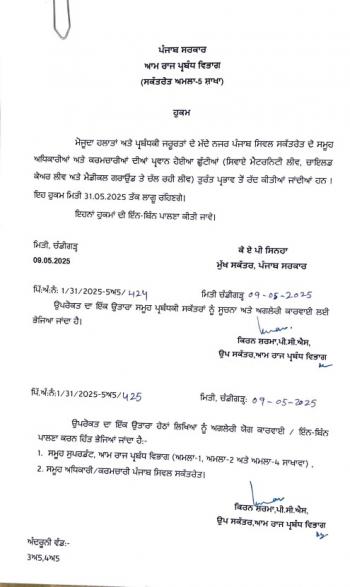 ਪੰਜਾਬ ਸਰਕਾਰ
ਆਮ ਰਾਜ ਪ੍ਰਬੰਧ ਵਿਭਾਗ
(ਸਕੱਤਰੇਤ ਅਮਲਾ-5 ਸ਼ਾਖਾ)
ਹੁਕਮ
ਮੌਜੂਦਾ ਹਲਾਤਾਂ ਅਤੇ ਪ੍ਰਬੰਧਕੀ ਜ਼ਰੂਰਤਾਂ ਦੇ ਮੱਦੇ ਨਜਰ ਪੰਜਾਬ ਸਿਵਲ ਸਕੱਤਰੇਤ ਦੇ ਸਮੂਹ
ਅਧਿਕਾਰੀਆਂ ਅਤੇ ਕਰਮਚਾਰੀਆਂ ਦੀਆਂ ਪ੍ਰਵਾਨ ਹੋਈਆਂ ਛੁੱਟੀਆਂ (ਸਿਵਾਏ ਮੈਟਰਨਿਟੀ ਲੀਵ, ਚਾਇਲਡ
ਕੇਅਰ ਲੀਵ ਅਤੇ ਮੈਡੀਕਲ ਗਰਾਊਂਡ ਤੇ ਚੱਲ ਰਹੀ ਲੀਵ) ਤੁਰੰਤ ਪ੍ਰਭਾਵ ਤੋਂ ਰੱਦ ਕੀਤੀਆਂ ਜਾਂਦੀਆਂ ਹਨ !
ਇਹ ਹੁਕਮ ਮਿਤੀ 31.05.2025 ਤੱਕ ਲਾਗੂ ਰਹਿਣਗੇ।
ਇਹਨਾਂ ਹੁਕਮਾਂ ਦੀ ਇੰਨ-ਬਿੰਨ ਪਾਲਣਾ ਕੀਤੀ ਜਾਵੇ।
ਮਿਤੀ, ਚੰਡੀਗੜ੍ਹ ਕੇ ਏ ਪੀ ਸਿਨਹਾ
09.05.2025 ਮੁੱਖ ਸਕੱਤਰ, ਪੰਜਾਬ ਸਰਕਾਰ
ਪਿੱ:ਅੰ:ਨੰ: 1/31/2025-5ਅ5/424 ਮਿਤੀ ਚੰਡੀਗੜ੍ਹ 09-05-2025
ਉਪਰੋਕਤ ਦਾ ਇੱਕ ਉਤਾਰਾ ਸਮੂਹ ਪ੍ਰਬੰਧਕੀ ਸਕੱਤਰਾਂ ਨੂੰ ਸੂਚਨਾ ਅਤੇ ਅਗਲੇਰੀ ਕਾਰਵਾਈ ਲਈ
ਭੇਜਿਆ ਜਾਂਦਾ ਹੈ।
ਕਿਰਨ ਸ਼ਰਮਾ,ਪੀ.ਸੀ.ਐਸ,
ਉਪ ਸਕੱਤਰ,ਆਮ ਰਾਜ ਪ੍ਰਬੰਧ ਵਿਭਾਗ
ਪਿੱ:ਅੰ:ਨੰ:1/31/2025-5ਅ5/425 ਮਿਤੀ, ਚੰਡੀਗੜ੍ਹ: 09-05-2025
ਉਪਰੋਕਤ ਦਾ ਇੱਕ ਉਤਾਰਾ ਹੇਠਾਂ ਲਿਖਿਆ ਨੂੰ ਅਗਲੇਰੀ ਯੋਗ ਕਾਰਵਾਈ / ਇੰਨ-ਬਿੰਨ
ਪਾਲਣਾ ਕਰਨ ਹਿੱਤ ਭੇਜਿਆਂ ਜਾਂਦਾ ਹੈ:-
1. ਸਮੂਹ ਸੁਪਰਡੰਟ, ਆਮ ਰਾਜ ਪ੍ਰਬੰਧ ਵਿਭਾਗ (ਅਮਲਾ-1, ਅਮਲਾ-2 ਅਤੇ ਅਮਲਾ-4 ਸਾਖਾਵਾਂ) .
2. ਸਮੂਹ ਅਧਿਕਾਰੀ/ਕਰਮਚਾਰੀ ਪੰਜਾਬ ਸਿਵਲ ਸਕੱਤਰੇਤ।
ਕਿਰਨ ਸ਼ਰਮਾ,ਪੀ.ਸੀ.ਐਸ,
ਉਪ ਸਕੱਤਰ,ਆਮ ਰਾਜ ਪ੍ਰਬੰਧ ਵਿਭਾਗ
ਅੰਦਰੂਨੀ ਵੰਡ:-
3ਅ5,4ਅ5